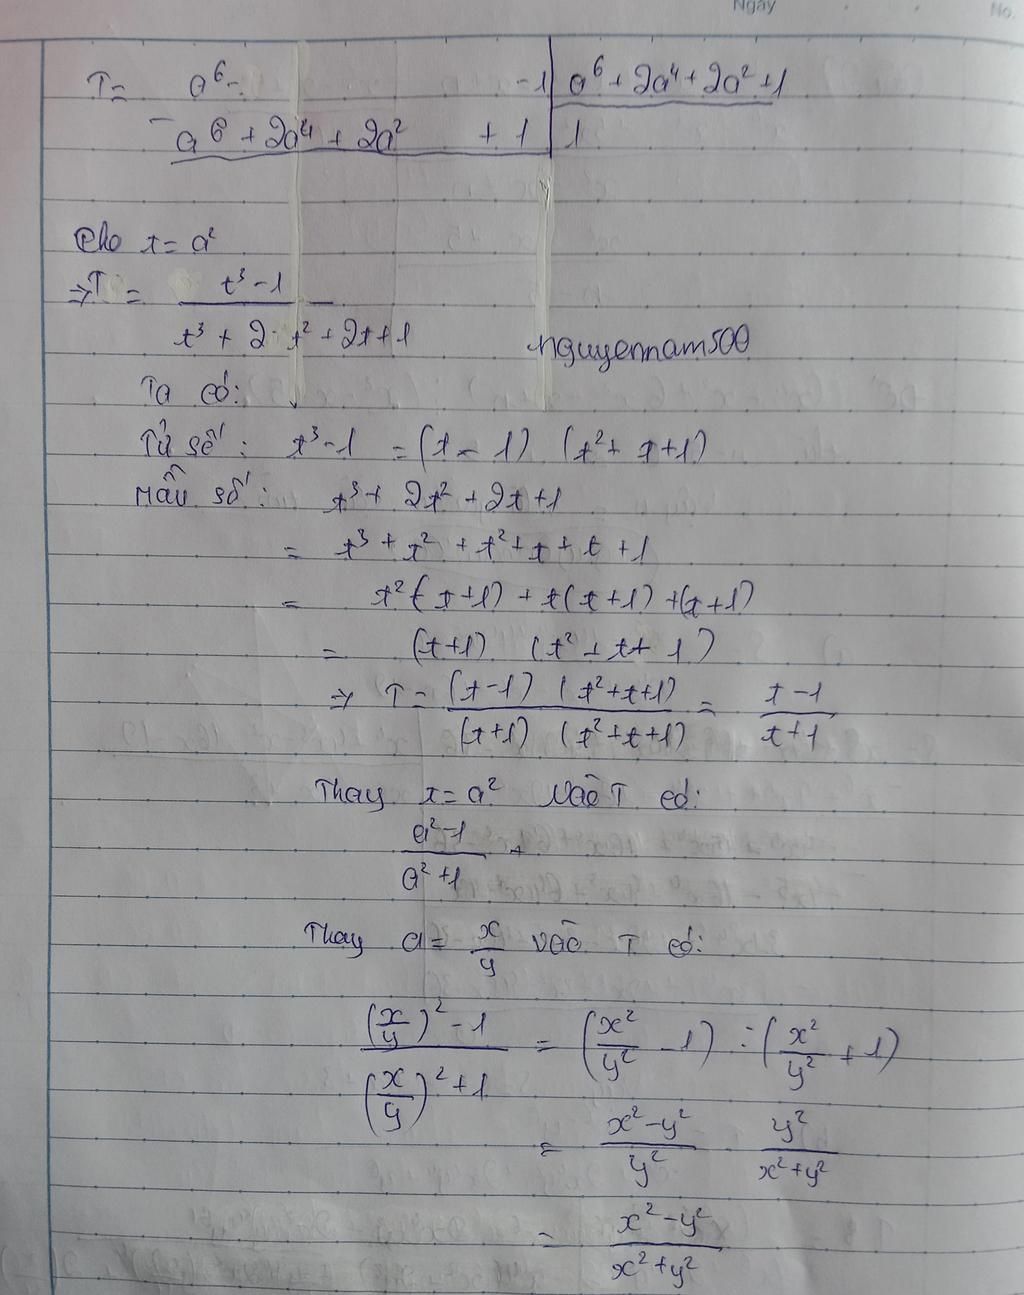 Ngày No.
T= a⁶- -1 | a⁶ + 2a⁴ + 2a² + 1
- a⁶ + 2a⁴ + 2a² + 1 | 1
Cho t = a²
⇒ T = (t³ - 1)/(t³ + 2t² + 2t + 1)
nguyennam500
Ta có:
Tử số: t³ - 1 = (t - 1) (t² + t + 1)
Mẫu số: t³ + 2t² + 2t + 1
= t³ + t² + t² + t + t + 1
= t² (t + 1) + t(t + 1) + (t + 1)
= (t+1) (t² + t + 1)
⇒ T = (t-1) (t² + t + 1)/(t+1) (t² + t + 1) = (t - 1)/(t + 1)
Thay t = a² vào T có:
(a² - 1)/(a² + 1)
Thay a = x/y vào T có:
((x/y)² - 1)/((x/y)² + 1) = (x²/y² - 1) : (x²/y² + 1)
= (x² - y²)/y² y²/(x² + y²)
= (x² - y²)/(x² + y²)